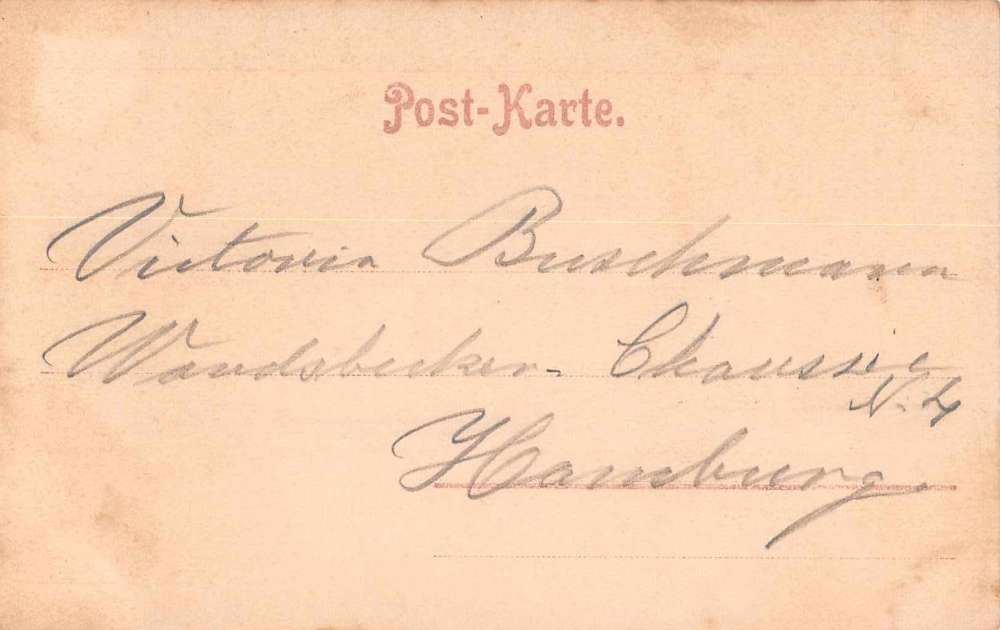 Post-Karte.
Victoria Buschmann
Wandsbecker-Chaussee
N. 4
Hamburg.